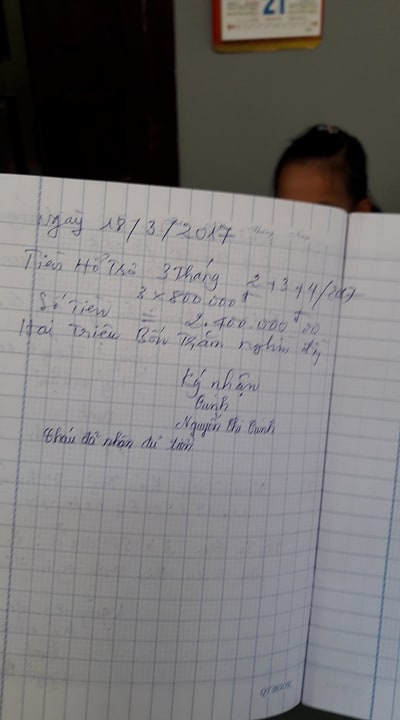 21
Ngày 18/3/2017
Tiền Hỗ Trợ 3 Tháng 2+3+4/2017
3 x 800.000đ
Số Tiền = 2.400.000đ00
Hai Triệu Bốn Trăm nghìn
Ký nhận
Oanh
Nguyễn Thị Oanh
Cháu đã nhận đủ tiền